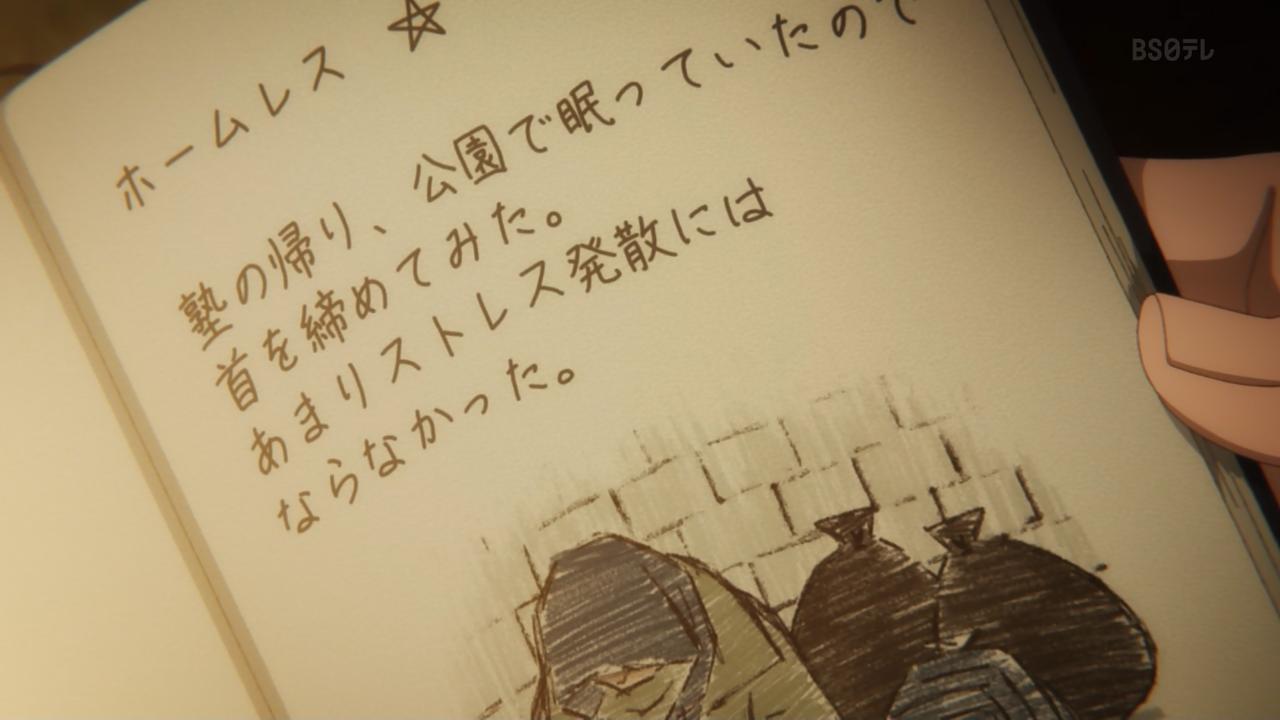 ホームレス ☆
塾の帰り、公園で眠っていたので
首を締めてみた。
あまりストレス発散には
ならなかった。
BS日テレ